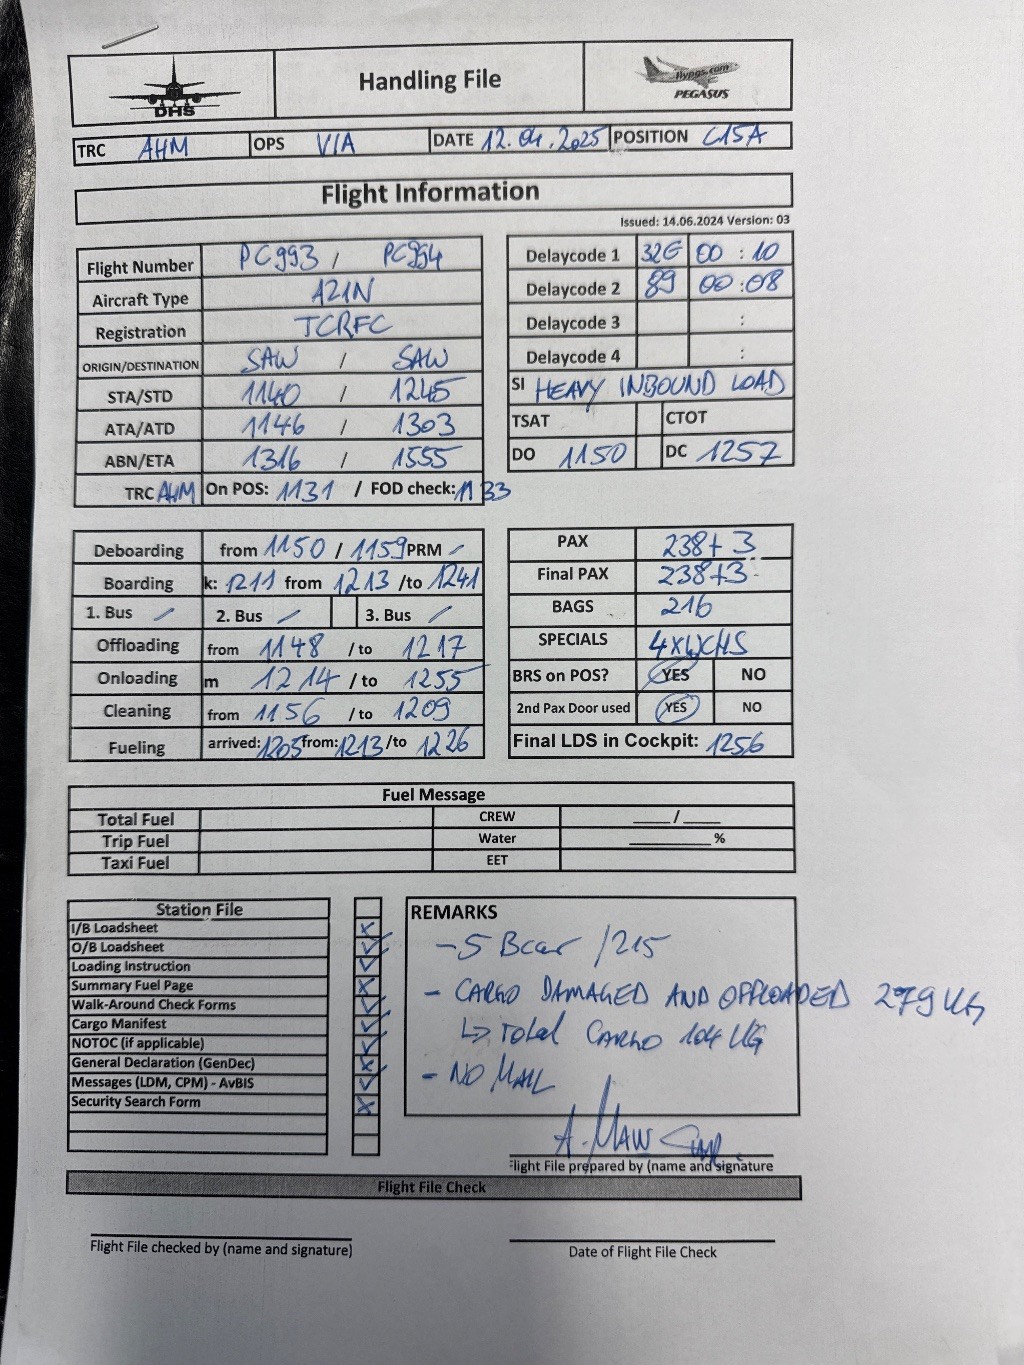 DHS
Handling File
flypgs.com
PEGASUS
TRC AHM OPS VIA DATE 12.04.2025 POSITION C15A
Flight Information
Issued: 14.06.2024 Version: 03
Flight Number PC993 / PC994
Aircraft Type A21N
Registration TCRFC
ORIGIN/DESTINATION SAW / SAW
STA/STD 1140 / 1245
ATA/ATD 1146 / 1303
ABN/ETA 1316 / 1555
TRC AHM On POS: 1131 / FOD check: 1133
Delaycode 1 32E 00 : 10
Delaycode 2 89 00 : 08
Delaycode 3 :
Delaycode 4 :
SI HEAVY INBOUND LOAD
TSAT CTOT
DO 1150 DC 1257
Deboarding from 1150 / 1159 PRM -
Boarding k: 1211 from 1213 /to 1241
1. Bus / 2. Bus / 3. Bus /
Offloading from 1148 /to 1217
Onloading m 1214 /to 1255
Cleaning from 1156 /to 1209
Fueling arrived: 1205 from: 1213 /to 1226
PAX 238+3
Final PAX 238+3
BAGS 216
SPECIALS 4xWCHS
BRS on POS? YES NO
2nd Pax Door used YES NO
Final LDS in Cockpit: 1256
Fuel Message
Total Fuel CREW ____/____
Trip Fuel Water ________%
Taxi Fuel EET
Station File
I/B Loadsheet x
O/B Loadsheet ✓
Loading Instruction ✓
Summary Fuel Page x
Walk-Around Check Forms ✓
Cargo Manifest ✓
NOTOC (if applicable) ✓
General Declaration (GenDec) x
Messages (LDM, CPM) - AvBIS ✓
Security Search Form x
REMARKS
- 5 Bcar /215
- CARGO DAMAGED AND OFFLOADED 279 KG
↳ Total CARGO 104 KG
- NO MAIL
A. MAW
Flight File prepared by (name and signature
Flight File Check
Flight File checked by (name and signature)
Date of Flight File Check